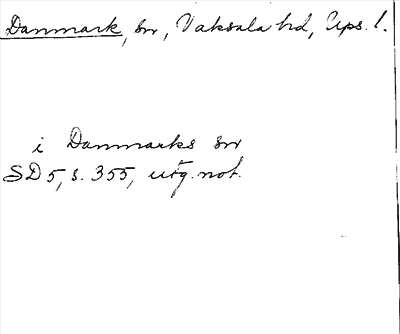 Danmark, sn, Vaksala hd, Ups. l.
i Danmarks sn
SD 5, s. 355, utg. not.